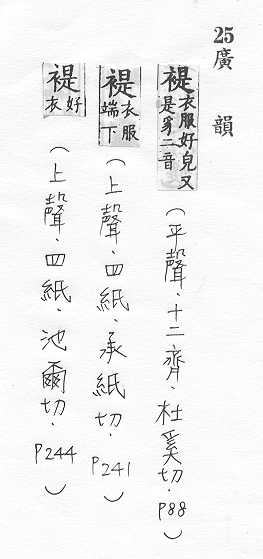 25廣韻
褆衣服好皃又是豸二音(平聲.十二齊.杜奚切.P88)
褆衣服端下(上聲.四紙.承紙切.P241)
褆好衣(上聲.四紙.池爾切.P244)